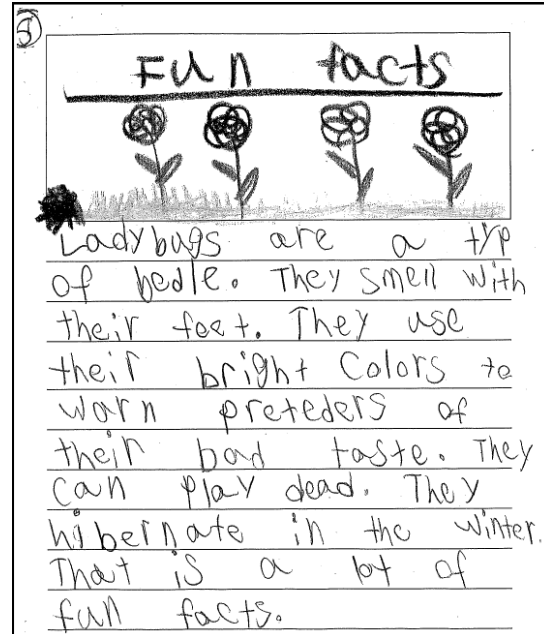 3
Fun facts
Ladybugs are a typ
of bedle. They smell with
their feet. They use
their bright Colors to
warn preteders of
their bad taste. They
can play dead. They
hibernate in the winter.
That is a lot of
fun facts.